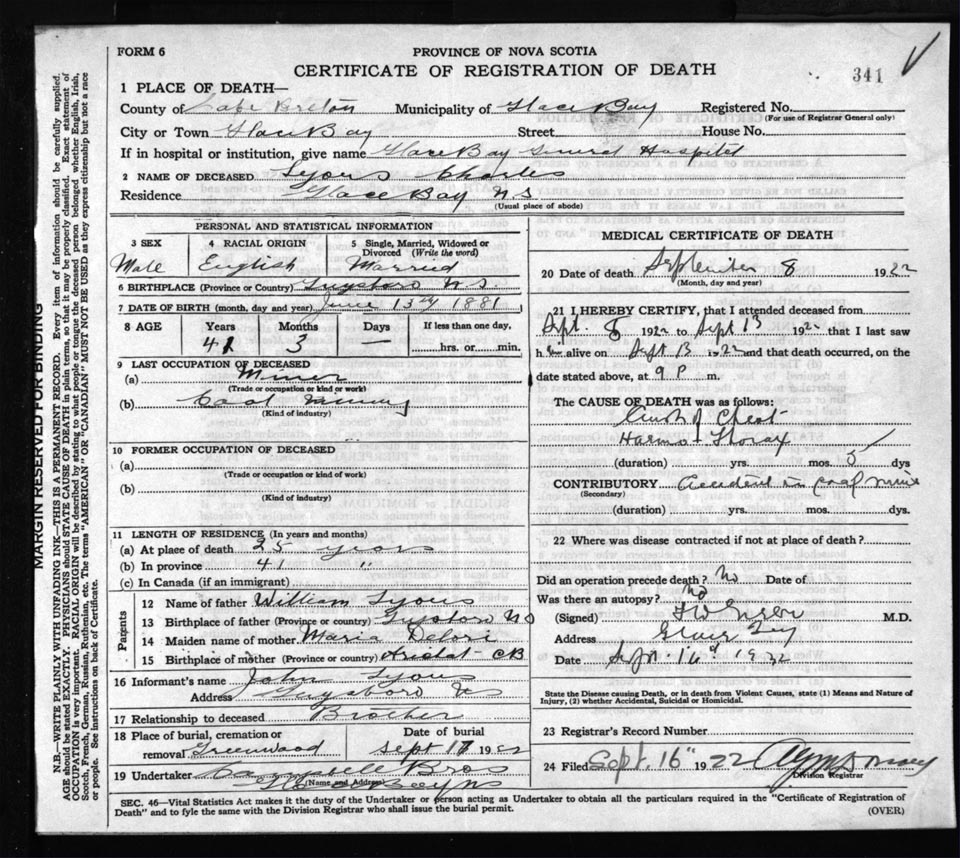 FORM 6
PROVINCE OF NOVA SCOTIA
CERTIFICATE OF REGISTRATION OF DEATH
341
1 PLACE OF DEATH—
County of Cape Breton Municipality of Glace Bay Registered No.
(For use of Registrar General only)
City or Town Glace Bay Street House No.
If in hospital or institution, give name Glace Bay General Hospital
2 NAME OF DECEASED Lyons Charles
Residence Glace Bay N.S
(Usual place of abode)
PERSONAL AND STATISTICAL INFORMATION
3 SEX 4 RACIAL ORIGIN 5 Single, Married, Widowed or Divorced (Write the word)
Male English Married
6 BIRTHPLACE (Province or Country) Guysboro N.S.
7 DATE OF BIRTH (month, day and year) June 13th 1881
8 AGE Years Months Days If less than one day,
41 3 — hrs. or min.
9 LAST OCCUPATION OF DECEASED
(a) Miner
(Trade or occupation or kind or work)
(b) Coal Mining
(Kind of industry)
10 FORMER OCCUPATION OF DECEASED
(a)
(Trade or occupation or kind of work)
(b)
(Kind of industry)
11 LENGTH OF RESIDENCE (In years and months)
(a) At place of death 25 years
(b) In province 41 "
(c) In Canada (if an immigrant)
Parents
12 Name of father William Lyons
13 Birthplace of father (Province or country) Guysboro NS
14 Maiden name of mother Maria
15 Birthplace of mother (Province or country) Arichat CB
16 Informant's name John Lyons
Address Guysboro NS
17 Relationship to deceased Brother
18 Place of burial, cremation or removal Greenwood
Date of burial
Sept 17 1922
19 Undertaker Bros
(Name and Address)
MEDICAL CERTIFICATE OF DEATH
20 Date of death September 8 1922
(Month, day and year)
21 I HEREBY CERTIFY, that I attended deceased from
Sept. 8 1922 to Sept 13 1922 that I last saw
h alive on Sept 13 1922 and that death occurred, on the
date stated above, at 9 P m.
The CAUSE OF DEATH was as follows:
Crush of Chest
Harmo-Thorax
(duration) yrs. mos. 5 dys
CONTRIBUTORY Accident in coal mine
(Secondary)
(duration) yrs. mos. dys.
22 Where was disease contracted if not at place of death?
Did an operation precede death? No Date of
Was there an autopsy? No
(Signed) M.D.
Address Glace Bay
Date Sept. 16th 1922
State the Disease causing Death, or in death from Violent Causes, state (1) Means and Nature of
Injury, (2) whether Accidental, Suicidal or Homicidal.
23 Registrar's Record Number
24 Filed Sept. 16" 1922
Division Registrar
SEC. 46—Vital Statistics Act makes it the duty of the Undertaker or person acting as Undertaker to obtain all the particulars required in the "Certificate of Registration of
Death" and to fyle the same with the Division Registrar who shall issue the burial permit.
(OVER)
MARGIN RESERVED FOR BINDING
N.B.—WRITE PLAINLY WITH UNFADING INK—THIS IS A PERMANENT RECORD. Every item of information should be carefully supplied.
AGE should be stated EXACTLY. PHYSICIANS should STATE CAUSE OF DEATH in plain terms, so that it may be properly classified. Exact statement of
OCCUPATION is very important. RACIAL ORIGIN will be described by stating to what people or tongue the deceased person belonged, whether English, Irish,
Scotch, French, German, Russian, Ruthenian, etc. The terms "AMERICAN" OR "CANADIAN" MUST NOT BE USED as they express citizenship but not a race
or people. See instructions on back of Certificate.